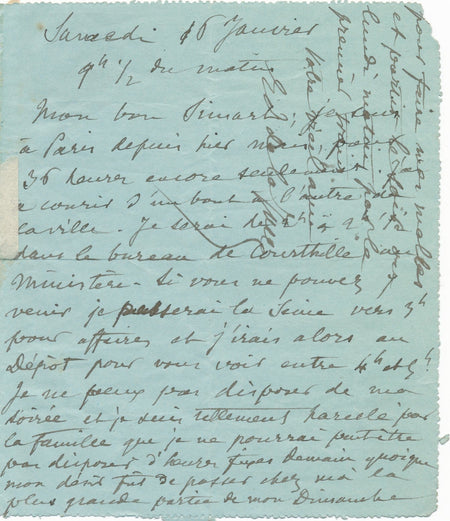 Samedi 16 Janvier
9h 1/2 du matin
Mon bon Simart, je suis
à Paris depuis hier mais pour
36 heures encore seulement et
à courir d'un bout à l'autre de
la ville. Je serai de 1h à 2h 1/2
dans le bureau de Courthille au
Ministère. Si vous ne pouvez
venir je passerai la Seine vers 3h
pour affaires et j'irais alors au
Dépôt pour vous voir entre 4h et 5h.
Je ne peux pas disposer de ma
soirée et je suis tellement harcelé par
la famille que je ne pourrai peut-être
pas disposer d'heures fixes demain quoique
mon désir fût de passer chez moi la
plus grande partie de mon Dimanche
pour faire mes malles
et partir
lundi matin par le
premier train
Votre